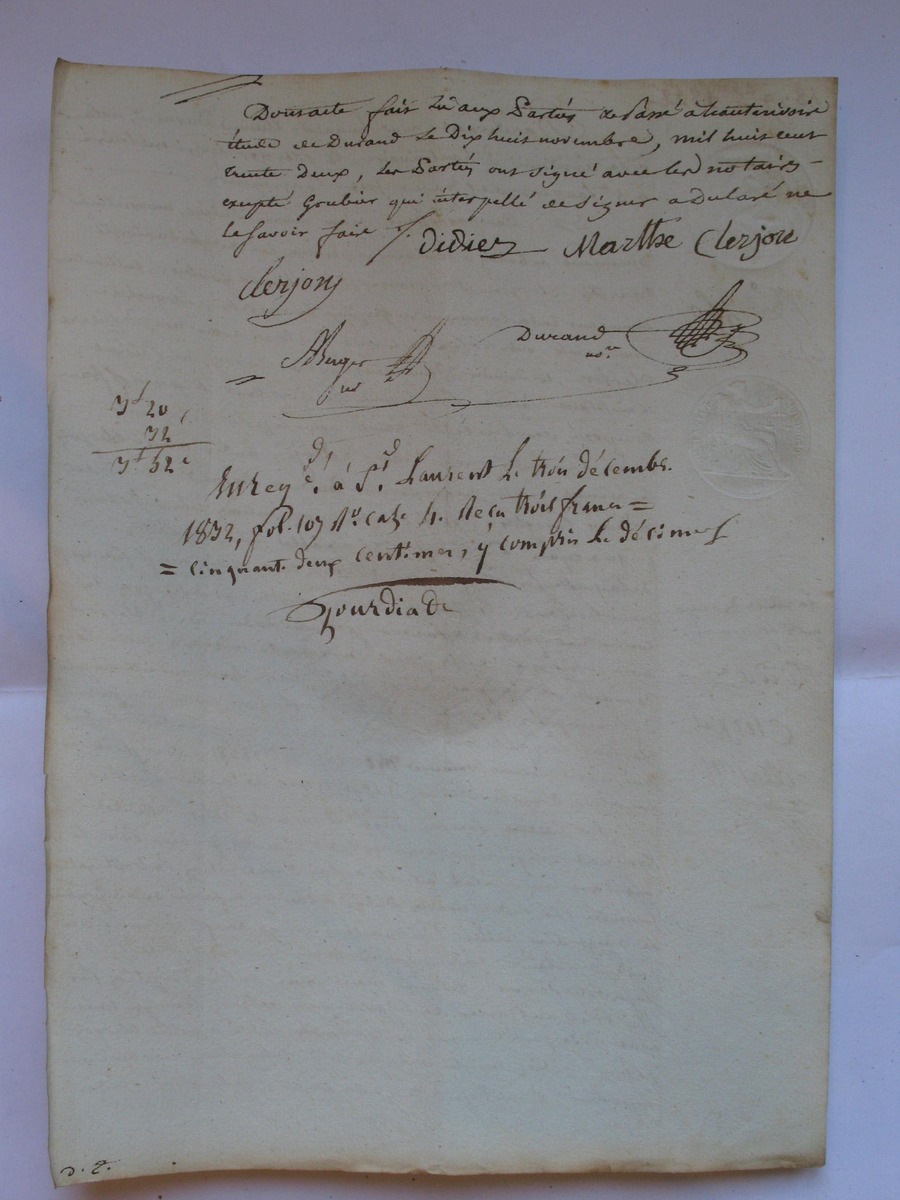 Dont acte fait lu aux Parties et Passé à hauterivoire
étude de Durand Le Dix huit novembre, mil huit cent
trente Deux, Les Parties ont signé avec les notaires
excepté Grubier qui interpellé de signer a Declaré ne
le savoir faire /.
Didier Marthe Clerjon
Clerjon
Berger Durand
nre
3f 20
32
3f 52c
Enregé. à St. Laurent le trois décembre
1832, fol. 109 Ro. case 4. Reçu trois francs =
= cinquante deux centimes, y compris le décime
Gourdiade
D. L.